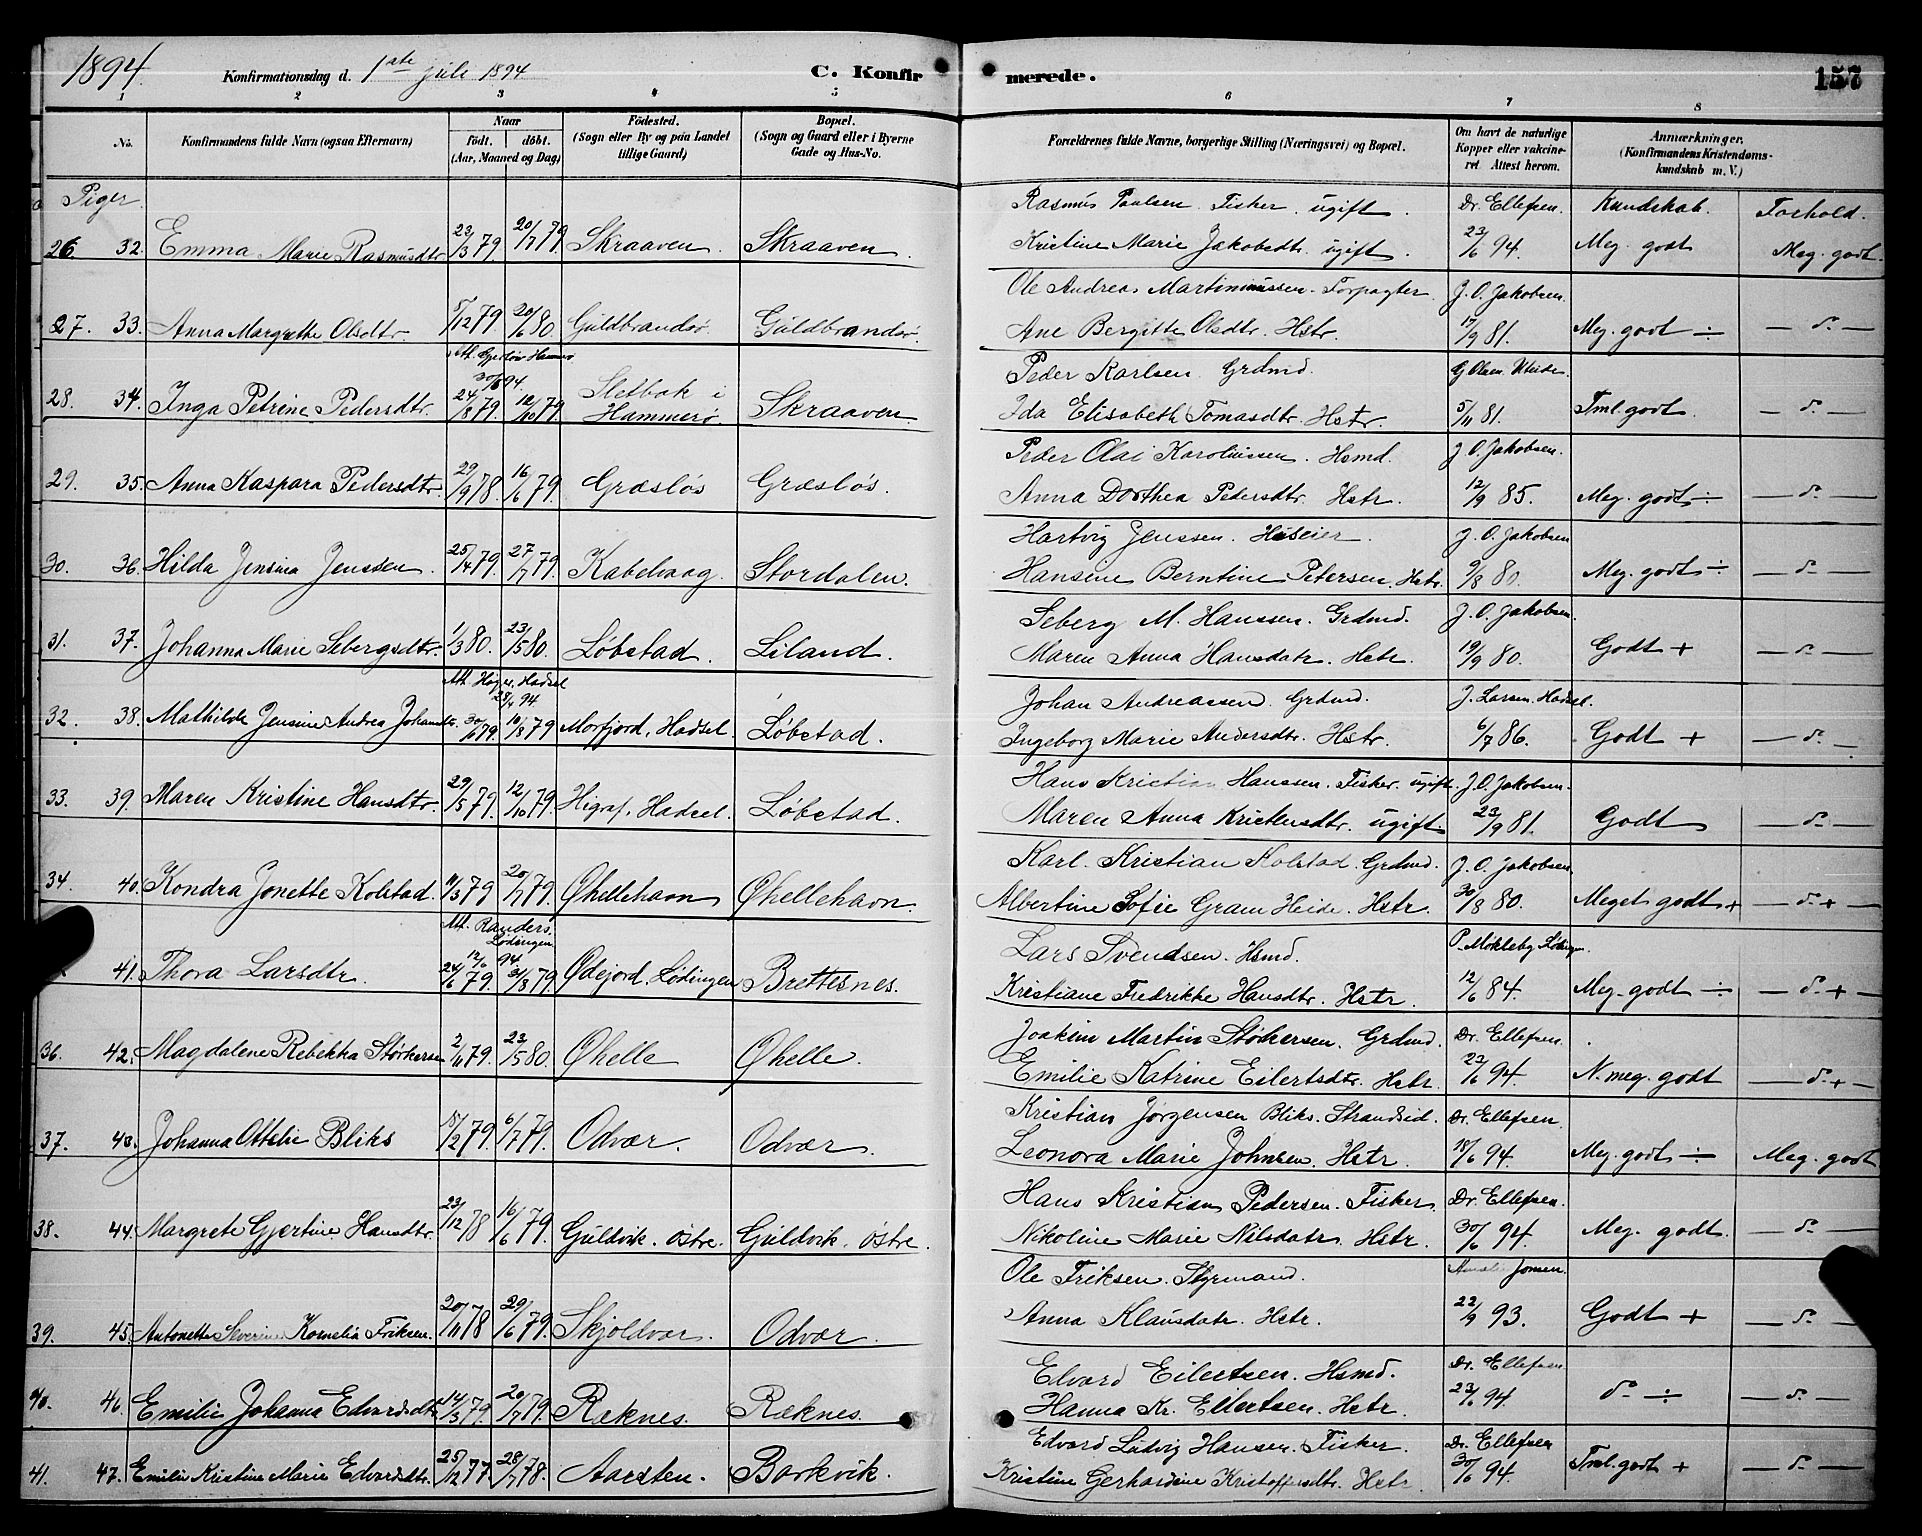 1894. Konfirmationsdag d. 1ste juli 1894 C. Konfirmerede. 157
1 2 3 4 5 6 7 8
No. Konfirmandens fulde Navn (ogsaa Efternavn) Naar født. døbt. (Aar, Maaned og Dag) Fødested. (Sogn eller By og paa Landet tillige Gaard) Bopæl. (Sogn og Gaard eller i Byerne Gade og Hus-No. Forældrenes fulde Navne, borgerlige Stilling (Næringsvei) og Bopæl. Om havt de naturlige Kopper eller vakcineret. Attest herom. Anmærkninger. (Konfirmandens Kristendomskundskab m. V.)
Piger. Rasmus Paulsen Fisker. ugift. Dr. Ellefsen. Kundskab. Forhold.
26 32. Emma Marie Rasmusdtr 23/3 79. 20/7 79. Skraaven. Skraaven. Kristine Marie Jakobsdtr. ugift. 23/6 94. Meg. godt Meg. godt.
Ole Andreas Martinussen. Forpagter. J. O. Jakobsen.
27. 33. Anna Margrethe Olsdtr. 5/12 79. 20/6 80 Guldbrandsø. Guldbrandsø. Ane Bergitte Olsdtr. Hstr. 17/9 81. Meg. godt ÷ — d- —
30/6 94. Peder Karlsen. Grdmd. G Olsen
28. 34. Inga Petrine Pedersdtr. 24/8 79. 12/10 79. Sletbak i Hammerø. Skraaven. Ida Elisabeth Tomasdtr. Hstr. 5/11 81. Tml. godt. — d- —
Peder Olai Karoliussen. Hsmd. J. O. Jakobsen.
29. 35. Anna Kaspara Pedersdtr. 29/9 78. 16/6 79. Græsløs Græsløs. Anna Dorthea Pedersdtr. Hstr. 12/9 85. Meg. godt ÷ — d- —
Hartvig Jenssen. Huseier. J. O. Jakobsen
30. 36. Hilda Jensina Jenssen. 25/4 79. 27/7 79. Kabelvaag. Stordalen. Hansine Berntine Petersen. Hstr. 9/8 80. Meg. godt ÷ — d- —
Seberg M. Hanssen. Grdmd. J. O. Jakobsen.
31. 37. Johanna Marie Sebergsdtr. 1/3 80. 23/5 80. Løbstad. Liland. Maren Anna Hansdatr. Hstr. 19/9 80. Godt + — d- —
Att. Hadsel 94 Johan Andreassen. Grdmd. J. Larsen Hadsel.
32. 38. Mathilde Jensine Andrea Johansdtr. 30/6 79. 10/8 79 Morfjord, Hadsel. Løbstad. Ingeborg Marie Andersdtr. Hstr. 6/7 86. Godt + — d- —
Hans Kristian Hanssen. Fisker. ugift. J. O. Jakobsen.
33. 39. Maren Kristine Hansdtr. 29/5 79. 12/10 79. Higraf, Hadsel. Løbstad. Maren Anna Kristensdtr. ugift 23/9 81. Godt — d- —
Karl Kristian Kolstad Grdmd. J. O. Jakobsen.
34. 40. Kondra Jonette Kolstad. 11/3 79 20/7 79. Øhellehavn Øhellehavn. Albertine Sofie Gram Heide. Hstr. 30/8 80. Meget godt + — d- + —
Att. Randers. Lødingen 12/6 94. Lars Svendsen. Hsmd. P. Mokleby Lødingen
41. Thora Larsdtr. 24/6 79. 31/8 79. Ødejord. Lødingen Brettesnes. Kristiane Fredrikke Hansdtr. Hstr. 12/6 84. Meg. godt ÷ — d- + —
Joakim Martin Størkersen. Grdmd. Dr. Ellefsen.
36. 42. Magdalene Rebekka Størkersen 2/11 79. 23/5 80. Øhelle Øhelle. Emilie Katrine Eilertsdtr. Hstr. 23/6 94. N. meg. godt — d- + —
Kristian Jørgensen Bliks. Strandsid. Dr. Ellefsen.
37. 43. Johanna Ottelie Bliks 15/2 79. 6/7 79. Odvær. Odvær. Leonora Marie Johnsen. Hstr. 18/6 94. Meg. godt ÷ Meg. godt
Hans Kristian Pedersen. Fisker. Dr. Ellefsen.
38. 44. Margrete Gjertine Hansdtr. 23/12 78 16/6 79. Guldvik. østre. Guldvik. østre. Nikoline Marie Nilsdatr. Hstr. 30/6 94. Meg. godt. — d- —
Ole Friksen. Styrmand. Jonsen.
39. 45. Antonette Severine Kornelia Friksen. 20/11 78 29/6 79. Skjoldvær. Odvær. Anna Klausdatr. Hstr. 22/9 93. Godt + — d- —
Edvard Eilertsen. Hsmd. Dr. Ellefsen
40. 46. Emilie Johanna Edvardsdtr 14/3 79. 20/7 79. Ræknes. Ræknes. Hanna Kr. Eilertsen. Hstr. 23/6 94. d- ÷ — d- —
Edvard Ludvig Hansen. Fisker. Dr. Ellefsen
41. 47. Emilie Kristine Marie Edvardsdtr. 25/12 77. 28/7 78. Aarsten. Borkvik. Kristine Gerhardine Kristoffersdtr. Hstr. 30/6 94. Tml. godt + — d- —